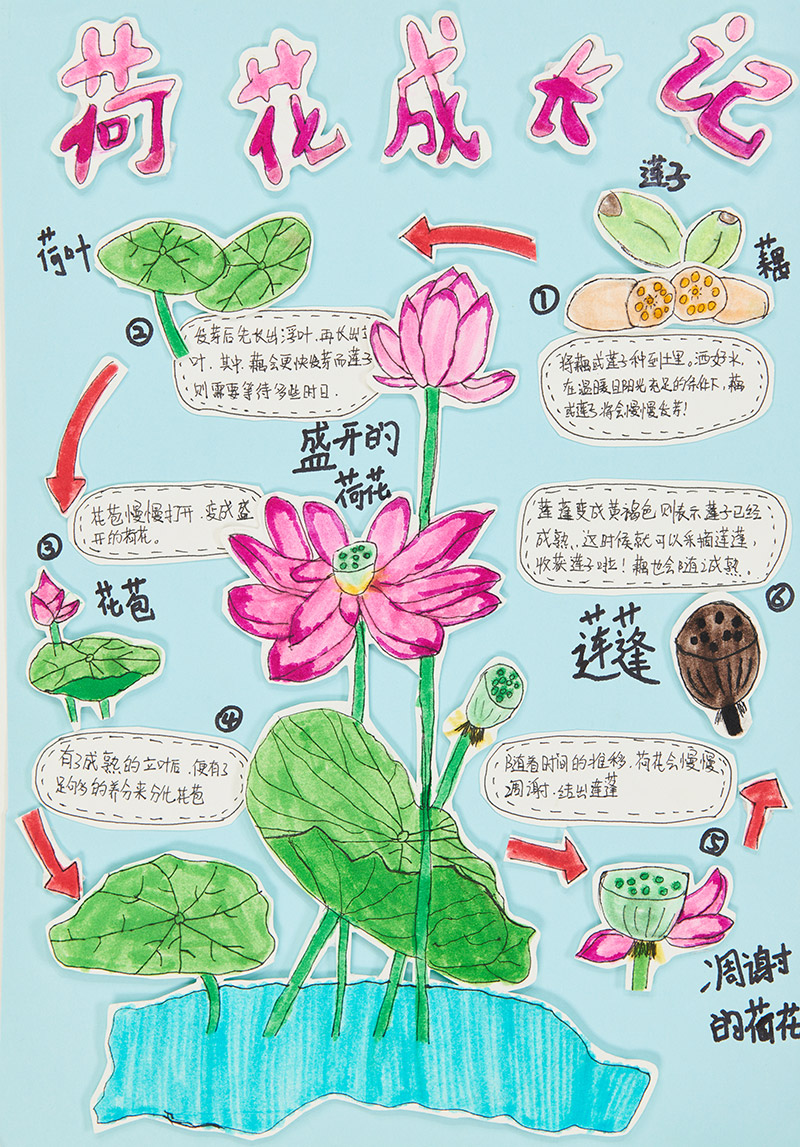 荷花成长记
莲子
藕
①
将藕或莲子种到土里。洒好水,
在温暖且阳光充足的条件下,藕
或莲子将会慢慢发芽!
荷叶
②
发芽后先长出浮叶,再长出
叶.其中,藕会更快发芽而莲子
则需要等待多些时日.
盛开的
荷花
花苞慢慢打开,变成盛
开的荷花。
③
花苞
④
有了成熟的立叶后,便有了
足够多的养分来分化花苞
随着时间的推移,荷花会慢慢
凋谢,结出莲蓬
⑤
凋谢
的荷花
莲蓬变成黄褐色则表示莲子已经
成熟,这时候就可以采摘莲蓬,
收获莲子啦!藕也会随之成熟.
⑥
莲蓬